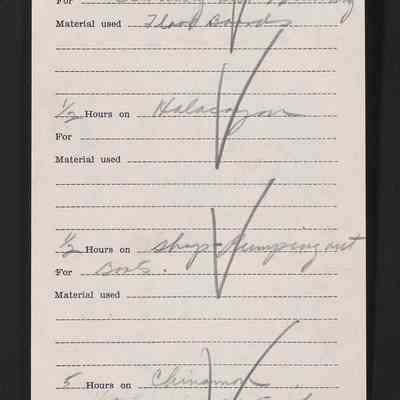 For
Material used Floor Boards
½ Hours on Halawagan
For
Material used
½ Hours on Shop Pumping out
For Boats.
Material used
5 Hours on Chinamon